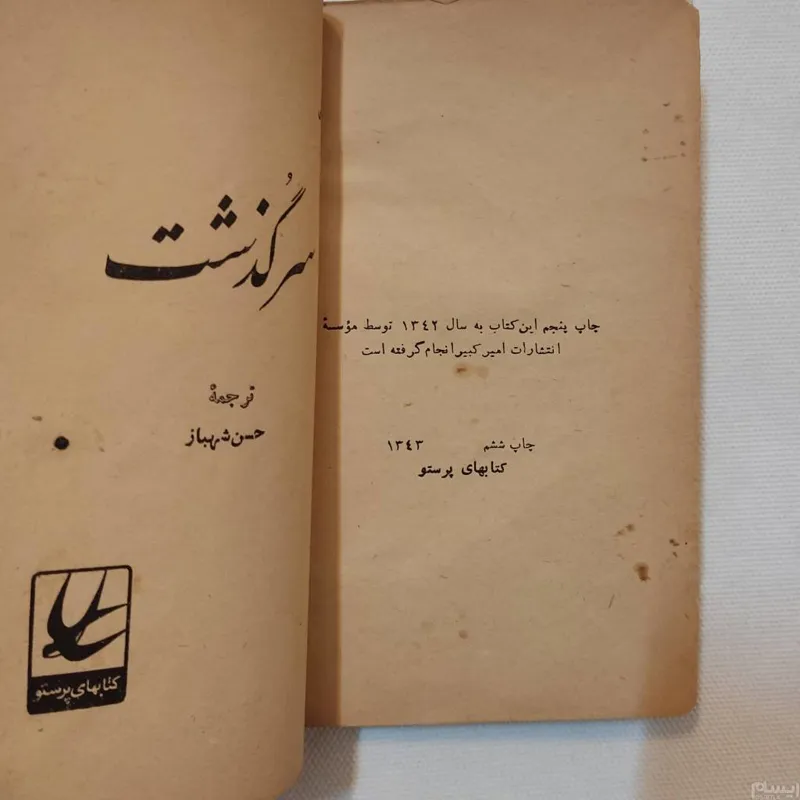 چاپ پنجم این کتاب به سال ۱۳٤۲ توسط مؤسسهٔ
انتشارات امیرکبیر انجام گرفته است
چاپ ششم ۱۳٤۳
کتابهای پرستو
سرگُذشت
ترجمهٔ
حسن شهباز
کتابهای پرستو
ایسام